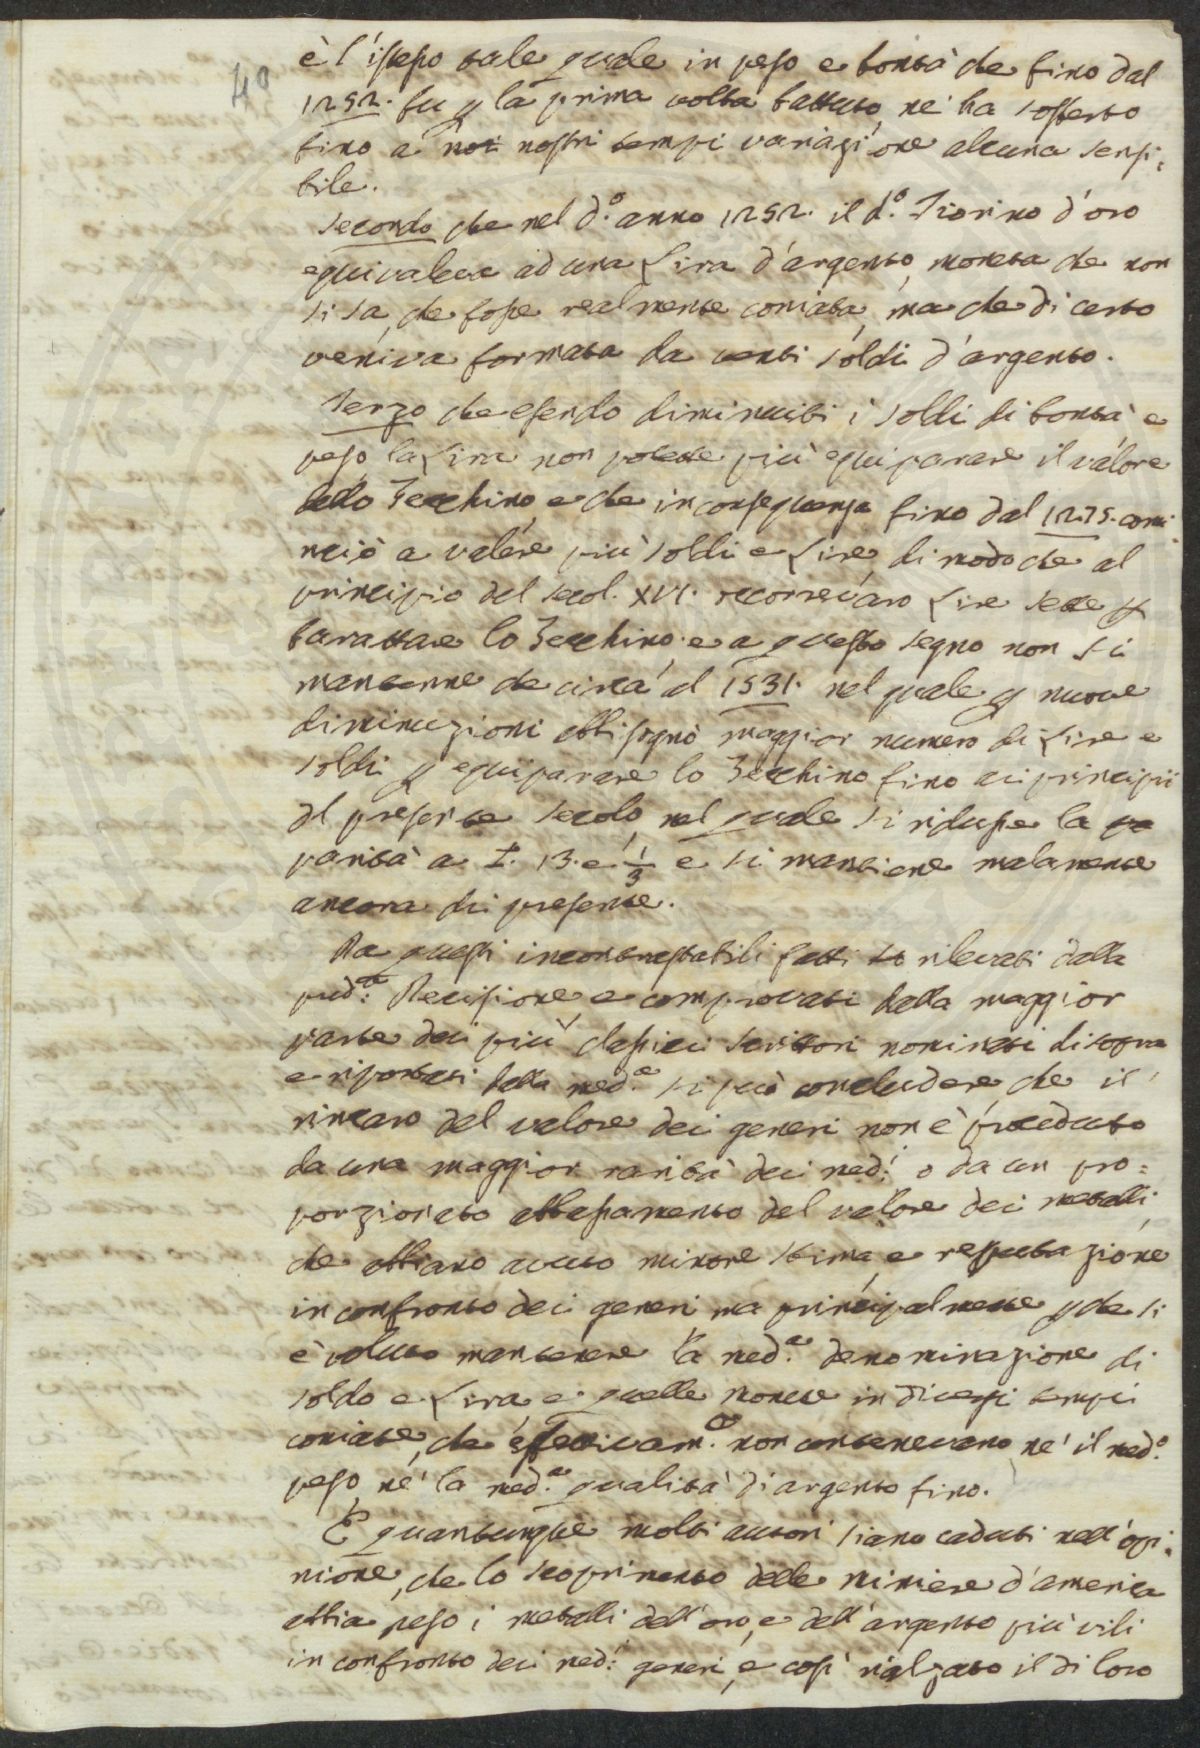 40
è l'istesso tale quale in peso e bontà che fino dal
1252. fu p la prima volta battuto, nè ha sofferto
fino a noi nostri tempi variazione alcuna sensi=
bile.
Secondo che nel d.o anno 1252. il d.o Fiorino d'oro
equivaleva ad una Lira d'argento, moneta che non
si sa, che fosse realmente coniata, ma che di certo
veniva formata da venti soldi d'argento.
Terzo che essendo diminuiti i soldi di bontà e
peso la Lira non potette più equiparare il valore
dello Zecchino, e che in conseguenza fino dal 1275. comi
nciò a valére più soldi e Lire, di modo che al
principio del secol. XVI. occorrevano Lire sette p
barattare lo Zecchino. e a questo segno non si
mantenne che circa al 1531. nel quale p nuove
diminuzioni abbisognò maggior numero di Lire e
soldi p equiparare lo Zecchino fino ai principii
del presente secolo, nel quale si ridusse la pa
parità a £. 13. e 1/3 e si mantiene malamente
ancora di presente.
Da questi incontrastabili fatti so rilevati dalla
pred.a: Recisione e comprovati dalla maggior
parte dei più classici scrittori nominati di sopra
e riportati dalla med.a si può concludere, che il
rincaro del valore dei generi non è proceduto
da una maggior rarità dei med.i o da un pro=
porzionato abbassamento del valore dei metalli
che abbiano avuto minore stima, e reputazione
in confronto dei generi, ma principalmente p che si
è voluto mantenere la med.a denominazione di
soldo e Lira a quelle monete in diversi tempi
coniate, che effettivam.e non contenevano nè il med.o
peso, nè la med.a qualità di argento fino.
E quantunque molti autori siano caduti nell'opi=
nione, che lo scoprimento delle miniere d'america
abbia reso i metalli dell'oro, e dell'argento più vili
in confronto dei med.i generi, e così rialzato il di loro